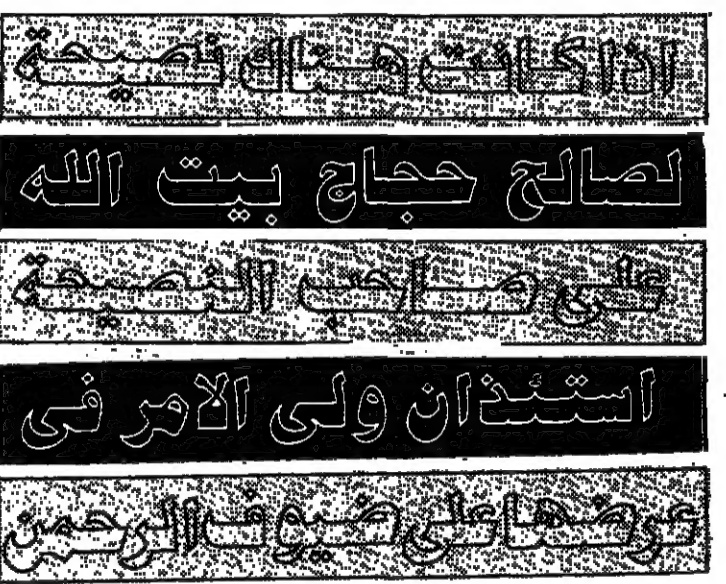 اذا كانت هناك نصيحة
لصالح حجاج بيت الله
على صاحب النصيحة
استئذان ولى الامر فى
عرضها على ضيوف الرحمن